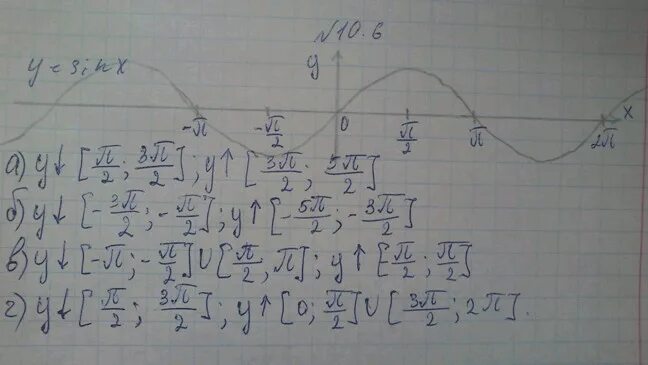 №10.6
y
y = sin x
-π -π/2 0 π/2 π 2π x
а) y↓ [π/2; 3π/2]; y↑ [3π/2; 5π/2]
б) y↓ [-3π/2; -π/2]; y↑ [-5π/2; -3π/2]
в) y↓ [-π; -π/2] U [π/2, π]; y↑ [π/2; π/2]
г) y↓ [π/2; 3π/2]; y↑ [0; π/2] U [3π/2; 2π].